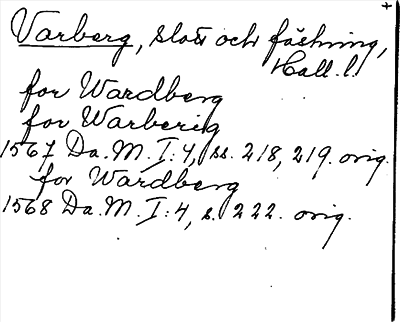 Varberg, slott och fästning,
Hall. l.
for Wardberg
for Warberig
1567 Da. M. I: 4, ss. 218, 219. orig.
for Wardberg
1568 Da. M. I: 4, s. 222. orig.